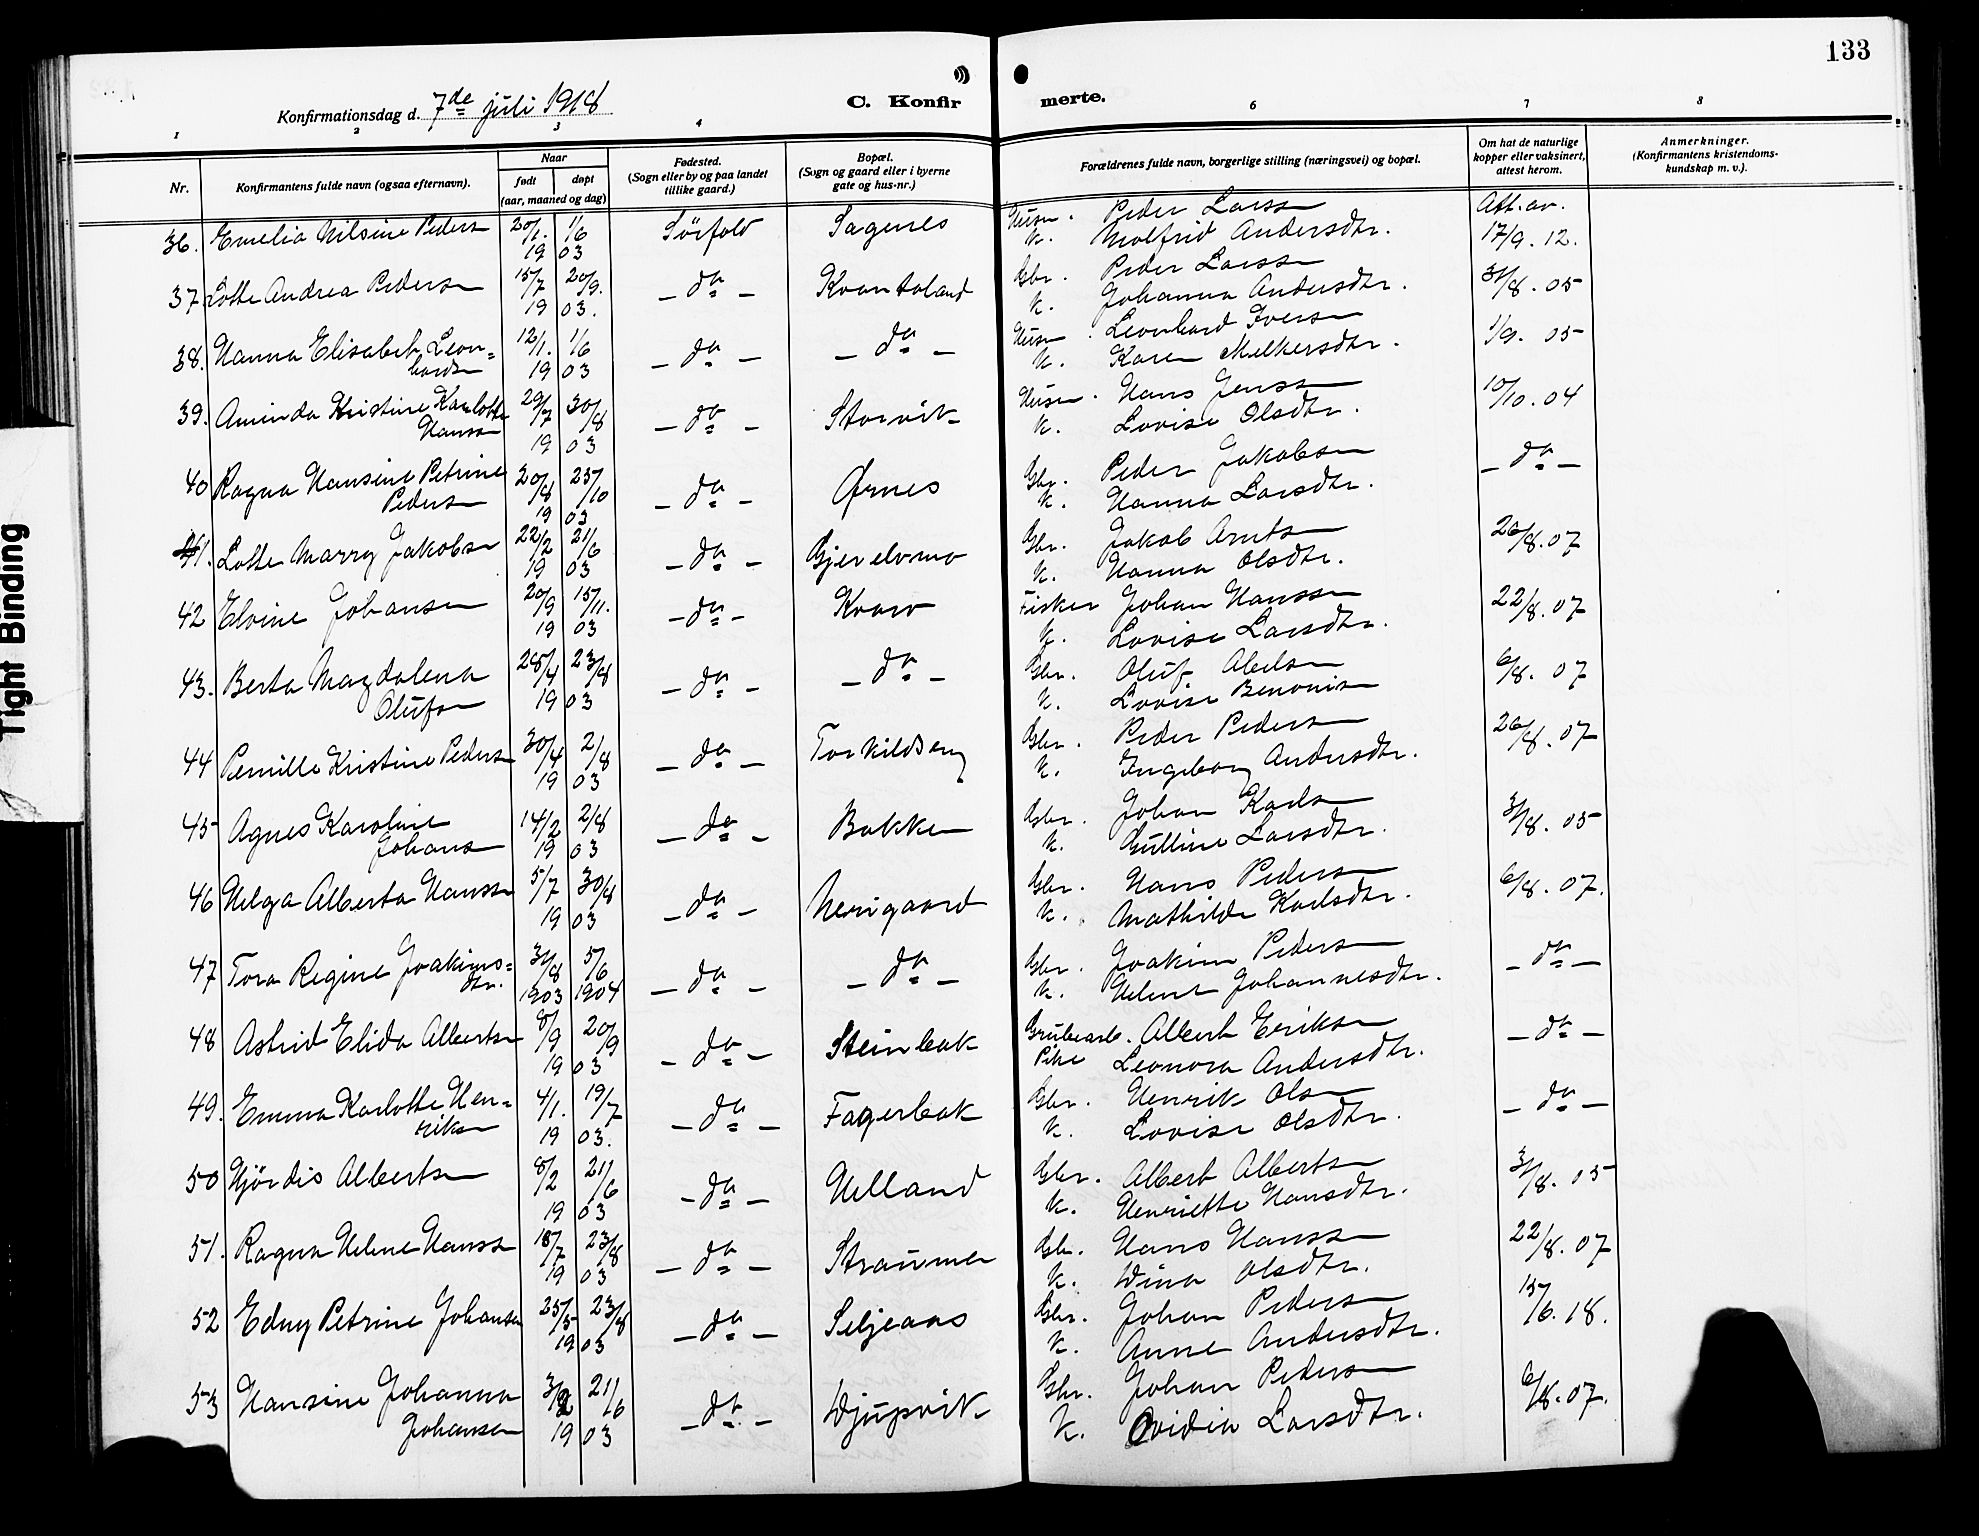 133
Konfirmationsdag d. 7de juli 1918
C. Konfirmerte.
1 2 3 4 6 7 8
Nr.
Konfirmantens fulde navn (ogsaa efternavn).
Naar
født
døpt
(aar, maaned og dag)
Fødested.
(Sogn eller by og paa landet
tillike gaard.)
Bopæl.
(Sogn og gaard eller i byerne
gate og hus-nr.)
Forældrenes fulde navn, borgerlige stilling (næringsvei) og bopæl.
Om hat de naturlige
kopper eller vaksinert,
attest herom.
Anmerkninger.
(Konfirmantens kristendoms-
kundskap m. v.).
36. Emelia Nilsine Peders 20/1. 1/6 Sörfold Sagenes Husm. Peder Larss Att. av.
19 03 K. Molfrid Andersdtr. 17/9. 12.
37 Lotte Andrea Peders 15/7 20/9. - do - Kvantoland Gbr. Peder Larss 31/8. 05
19 03. K. Johanna Andersdtr.
38. Hanna Elisabet Leon= 12/1. 1/6 - do - - do - Husm. Leonhard Ivers 1/9. 05
hards 19 03 K. Karen Melkersdtr.
39. Aminda Kristine Karlotte 29/7 30/8 - do - Storvik Husm. Hans Jenss 10/10. 04
Hanss 19 03 K. Lovise Olsdtr.
40 Ragna Hansine Petrine 20/8 25/10 - do - Ørnes Gbr. Peder Jakobs - do -
Peders 19 03 K. Hanna Larsdtr.
41. Lotte Marry Jakobs 22/2 21/6 - do - Gjerelvmo Gbr. Jakob Arnts 26/8. 07
19 03 K. Hanna Olsdtr.
42 Elvine Johans 20/9 15/11. - do - Kvarv Fisker Johan Hanss 22/8. 07
19 03 K. Lovise Larsdtr.
43. Berta Magdalena 28/4 23/8 - do - - do - Gbr. Oluf Abels 6/8. 07
Olufs 19 03 K. Lovise Benonis
44 Pernille Kristine Peders 30/4 2/8 - do - Torkildseng Gbr. Peder Peders 26/8. 07
19 03 K. Ingeborg Andersdtr.
45 Agnes Karoline 14/2 2/8 - do - Bakken Gbr. Johan Karls 31/8. 05
Johans 19 03 K. Gulline Larsdtr.
46 Helga Alberta Hanss 5/7 30/8 - do - Nerigaard Gbr. Hans Peders 6/8. 07.
19 03 K. Mathilde Karlsdtr.
47 Tora Regine Joakims= 31/8 5/6 - do - - do - Gbr. Joakim Peders - do -
dtr. 1903 1904 K. Helene Johannesdtr.
48 Astrid Elida Alberts 8/9 20/9 - do - Steinbak Grubearb. Albert Eriks - do -
19 03 Pike Leonora Andersdtr.
49. Emma Karlotte Hen= 4/1. 19/7 - do - Fagerbak Gbr. Henrik Ols - do -
riks 19 03. K. Lovise Olsdtr.
50 Hjördis Alberts 8/2 21/6 - do - Helland Gbr. Albert Alberts 31/8. 05
19 03 K. Henriette Hansdtr.
51. Ragna Helene Hanss 18/7 23/8 - do - Straumen Gbr. Hans Hanss 22/8. 07
19 03 K. Dina Olsdtr.
52 Edny Petrine Johansen 25/5 23/8 - do - Seljeaas Gbr. Johan Peders 15/6. 18.
19 03 K. Anne Andersdtr.
53 Hansine Johanna 3/2 21/6 - do - Djupvik Gbr. Johan Peders 6/8. 07.
Johansen 19 03 K. Ovidia Larsdtr.
Tight Binding